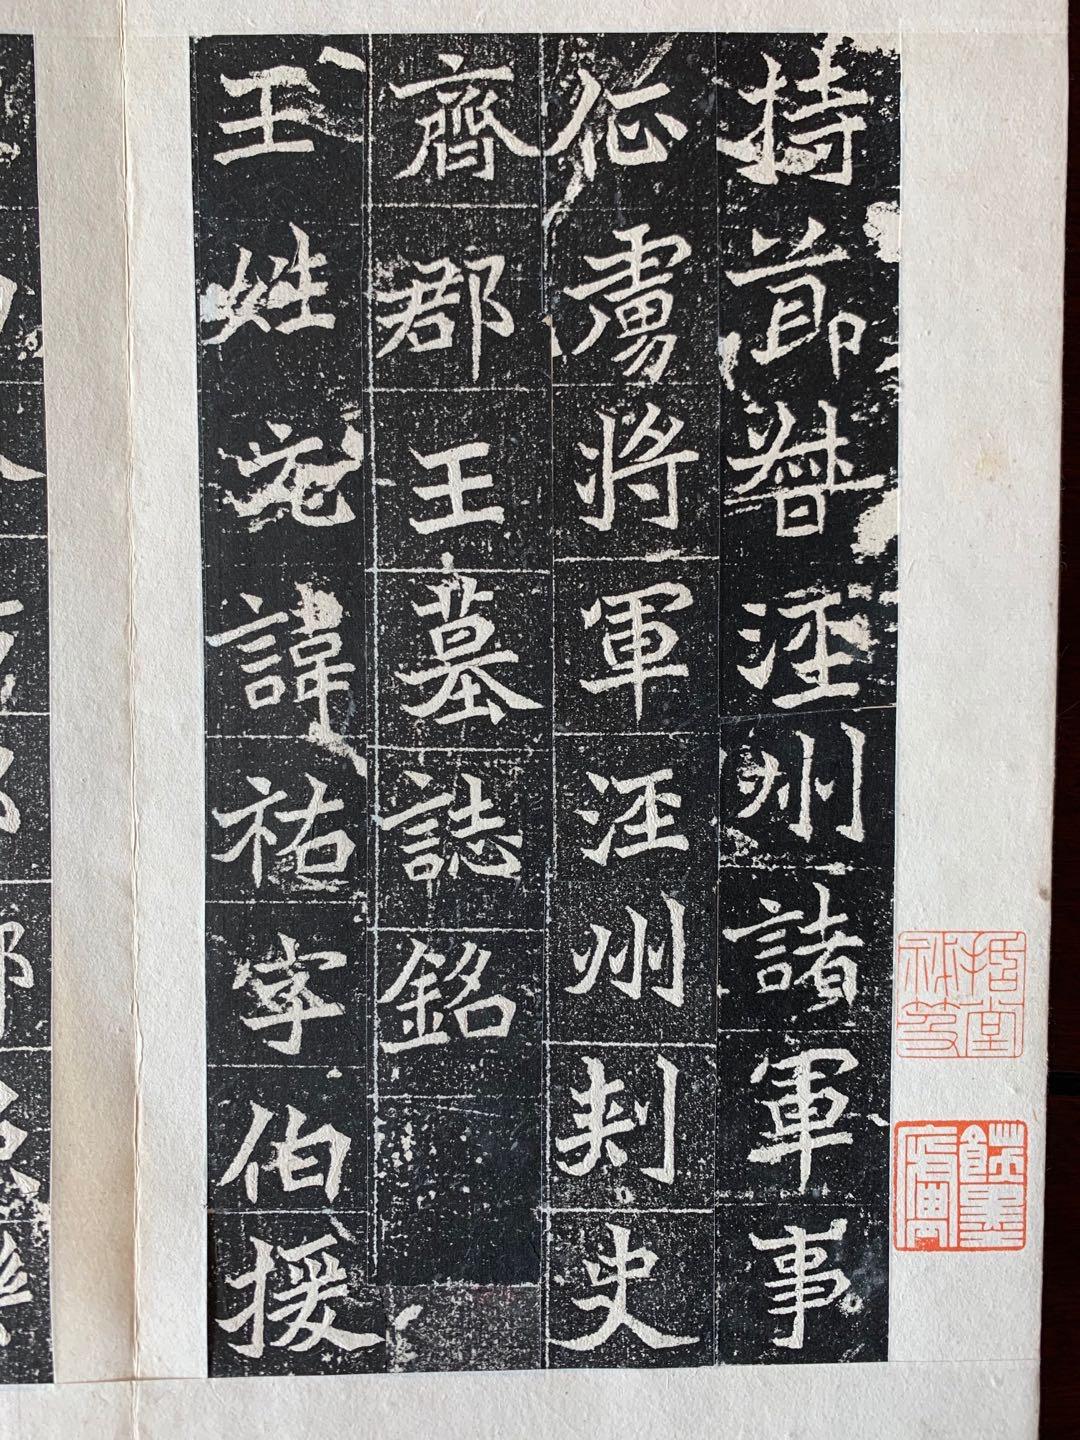 持節督涇州諸軍事
征虜將軍涇州刺史
齊郡王墓誌銘
王姓元諱祐字伯援